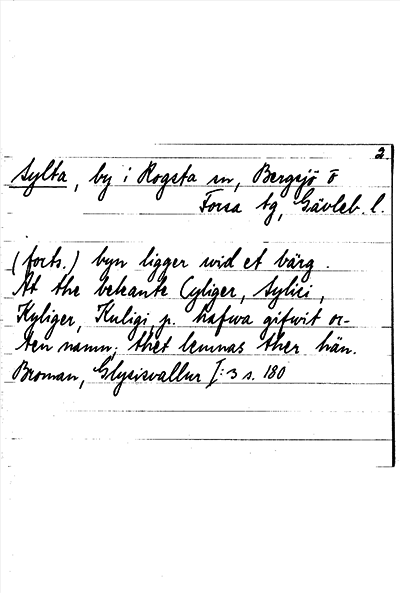 2.
Sylta, by i Rogsta sn, Bergsjö o
Forsa tg, Gävleb. l.
(forts.) byn ligger wid et bärg.
At the bekante Cyliger, Sylici,
Kyliger, Kuligi p. hafwa gifwit or-
ten namn; thet lemnas ther hän.
Broman, Glysisvallur I:3 s. 180